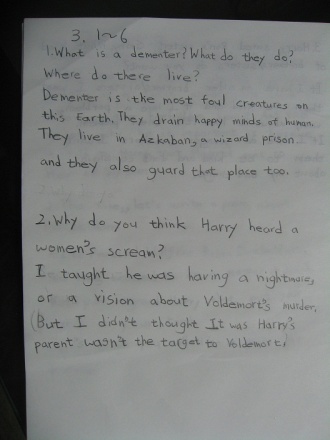 3. 1~6
1. What is a dementer? What do they do?
Where do there live?
Dementer is the most foul creatures on
this Earth. They drain happy minds of human.
They live in Azkaban, a wizard prison
and they also guard that place too.
2. Why do you think Harry heard a
women's screan?
I taught he was having a nightmare,
or a vision about Voldemort's murder.
(But I didn't thought It was Harry's
parent wasn't the target to Voldemort.